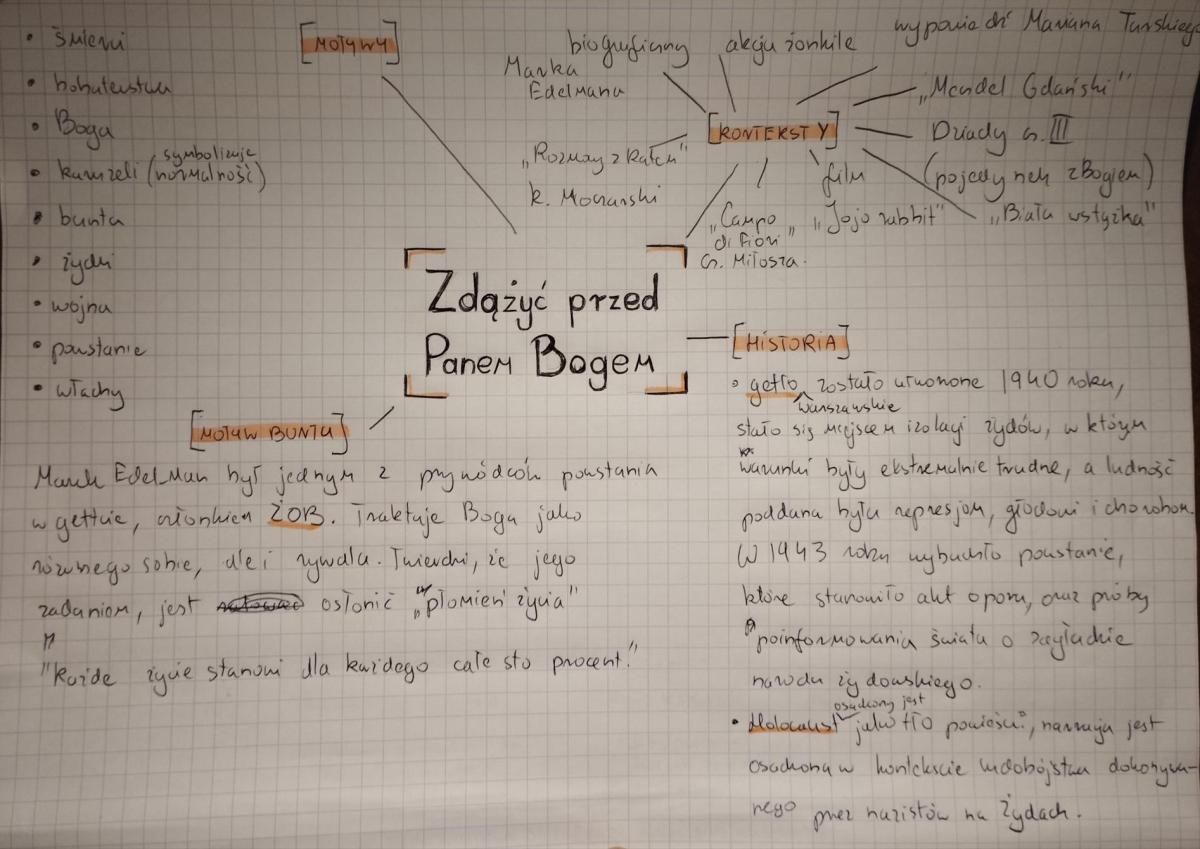 [MOTYWY]
• śmierci
• bohaterstwa
• Boga
• karuzeli (symbolizuje normalność)
• buntu
• żydzi
• wojna
• powstanie
• włachy
[KONTEKSTY]
biograficzny
Marka
Edelmana
akcja żonkile
wypowiedź Mariana Turskiego
„Mendel Gdański"
Dziady cz. III
(pojedynek z Bogiem)
„Biała wstążka"
film
„Jojo rabbit"
„Campo
di Fiori"
Cz. Miłosza.
„Rozmowy z katem"
K. Moczarski
Zdążyć przed
Panem Bogem
[HISTORIA]
• getto warszawskie zostało utworzone 1940 roku,
stało się miejscem izolacji żydów, w którym
warunki były ekstremalnie trudne, a ludność
poddana była represjom, głodowi i chorobom.
W 1943 roku wybuchło powstanie,
które stanowiło akt oporu, oraz próby
poinformowania świata o zagładzie
narodu żydowskiego.
• Holocaust osadzony jest jako tło powieści, narracja jest
osadzona w kontekście ludobójstwa dokonywa-
nego przez nazistów na Żydach.
[MOTYW BUNTU]
Marek Edelman był jednym z przywódców powstania
w gettcie, członkiem ŻOB. Traktuje Boga jako
równego sobie, ale i rywala. Twierdzi, że jego
zadaniem, jest osłonić „płomień życia"
"Każde życie stanowi dla każdego całe sto procent."